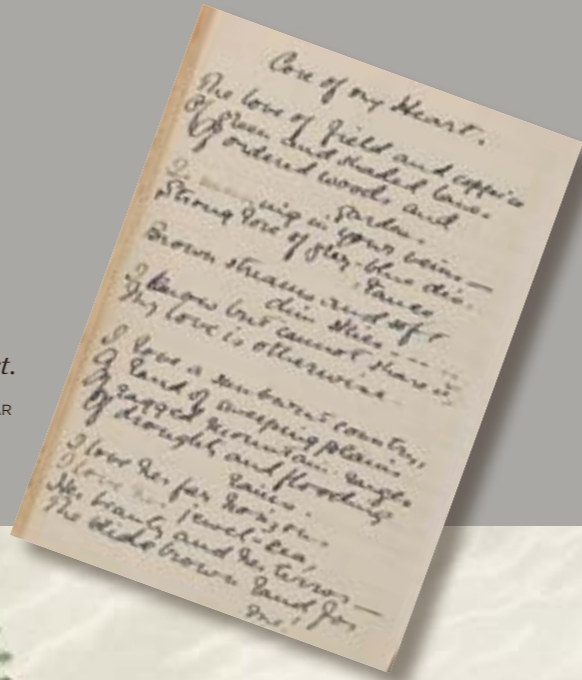 t.
AR
Core of my Heart.
The love of field and coppice
Of green and shaded lanes.
Of ordered woods and
gardens.
Is running in your veins —
Strong love of grey-blue dis-
tance
Brown streams and soft
dim skies
I know but cannot share it,
My love is otherwise.
I love a sunburnt country,
A land of sweeping plains
Of ragged mountain ranges
Of droughts and flooding
rains.
I love her far horizons.
I love her jewel-sea,
Her beauty and her terror —
The wide brown land for
me!